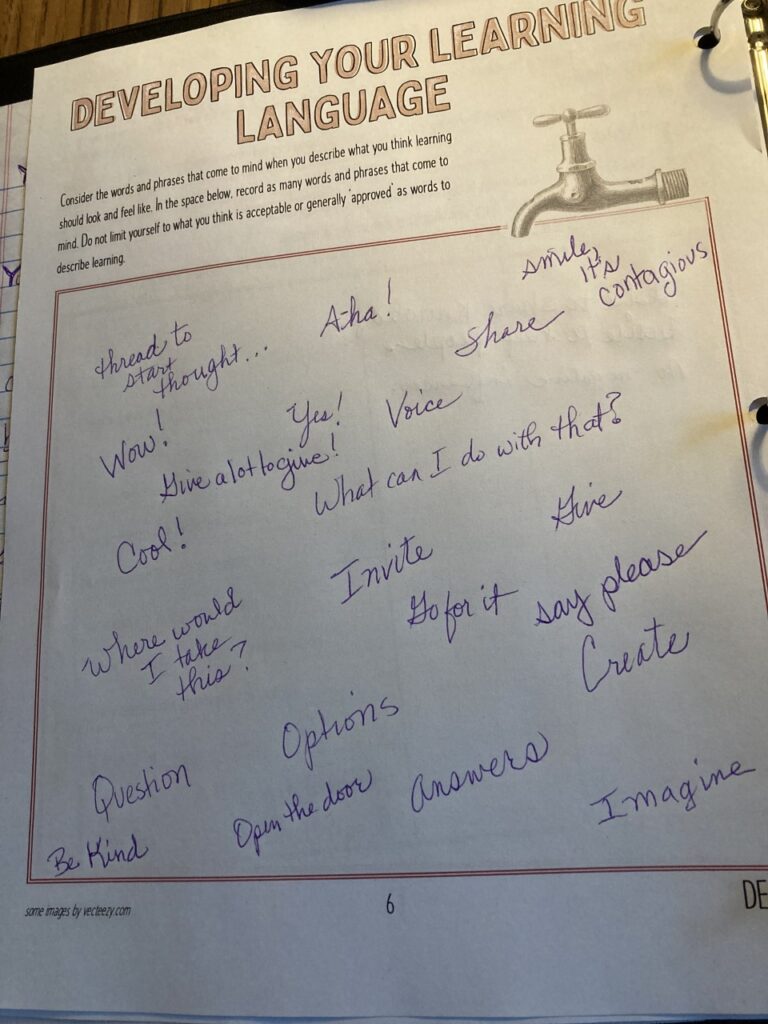 DEVELOPING YOUR LEARNING
LANGUAGE
Consider the words and phrases that come to mind when you describe what you think learning
should look and feel like. In the space below, record as many words and phrases that come to
mind. Do not limit yourself to what you think is acceptable or generally 'approved' as words to
describe learning.
smile,
it's
contagious
A-ha!
Share
thread to
start
thought...
Wow!
Yes!
Voice
Give a lot to give!
What can I do with that?
Cool!
Give
Invite
Go for it
say please
Where would
I take
this?
Create
Options
Question
Answers
Open the door
Imagine
Be Kind
some images by vecteezy.com
6
DE